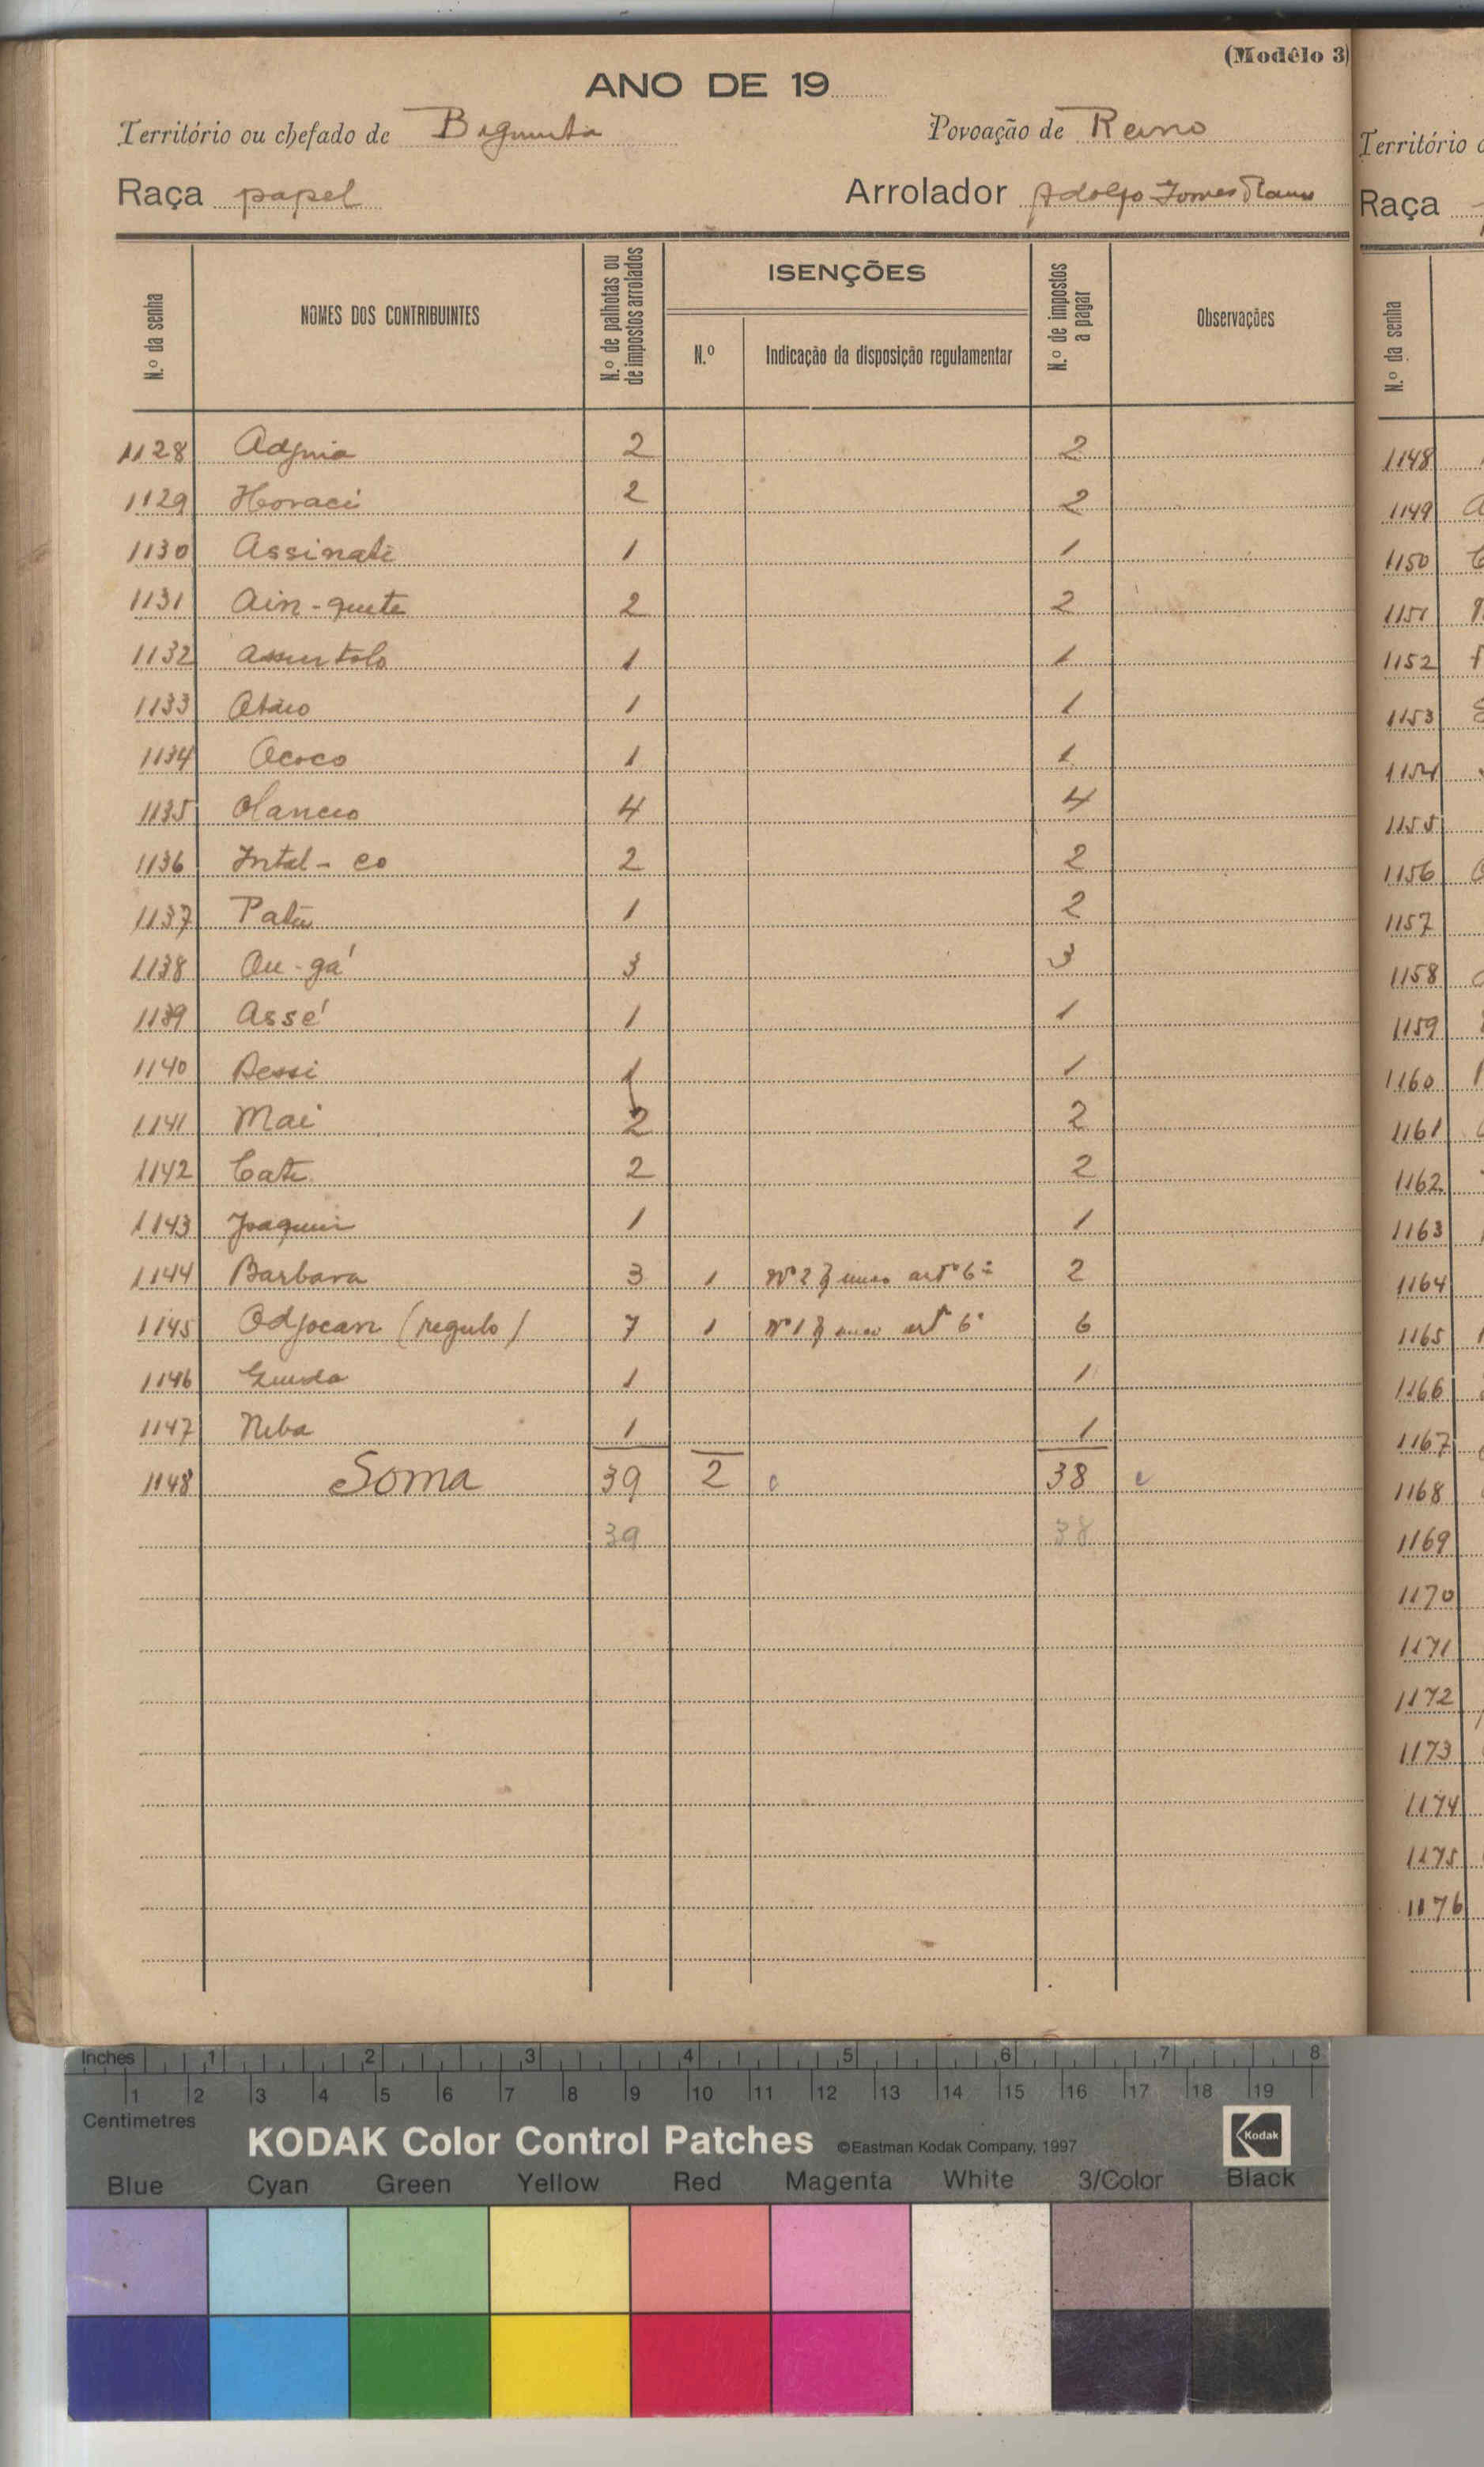 (Modêlo 3)
ANO DE 19
Território ou chefado de Biguinta Povoação de Reino
Raça papel Arrolador Adolfo Gomes Ramos
N.º da senha
NOMES DOS CONTRIBUINTES
N.º de palhotas ou de impostos arrolados
ISENÇÕES
N.º
Indicação da disposição regulamentar
N.º de impostos a pagar
Observações
1128 2 2
1129 Horaci 2 2
1130 Assinate 1 1
1131 Ain-quete 2 2
1132 1 1
1133 1 1
1134 Ococo 1 1
1135 4 4
1136 Intal-co 2 2
1137 1 2
1138 Ou-gá 3 3
1139 Assé 1 1
1140 Bessi 1 1
1141 Mai 2 2
1142 Cate 2 2
1143 Joaquim 1 1
1144 Barbara 3 1 Nº 2 artº 6º 2
1145 Odjocan (regulo) 7 1 Nº 1 artº 6º 6
1146 1 1
1147 Niba 1 1
1148 Soma 39 2 38
39 38
Território
Raça
N.º da senha
1148
1149
1150
1151
1152
1153
1154
1155
1156
1157
1158
1159
1160
1161
1162
1163
1164
1165
1166
1167
1168
1169
1170
1171
1172
1173
1174
1175
1176
Inches 1 2 3 4 5 6 7 8
1 2 3 4 5 6 7 8 9 10 11 12 13 14 15 16 17 18 19
Centimetres
KODAK Color Control Patches ©Eastman Kodak Company, 1997 Kodak
Blue Cyan Green Yellow Red Magenta White 3/Color Black